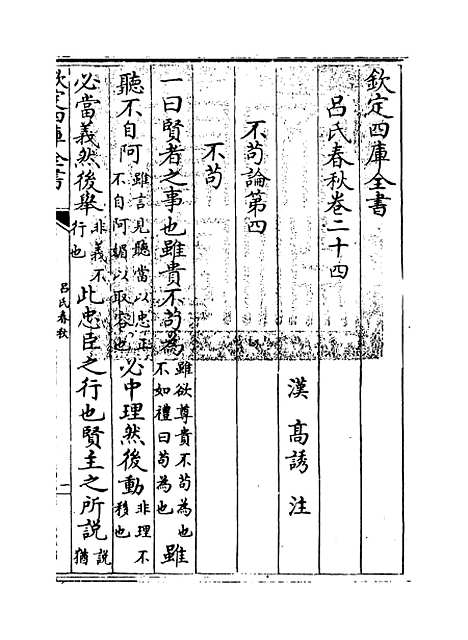 欽定四庫全書
呂氏春秋卷二十四
漢 高誘 注
不苟論第四
不苟
一曰賢者之事也雖貴不苟為雖欲尊貴不苟為也不如禮曰苟為也雖
聽不自阿雖言見聽當以忠正不自阿媚以取容也必中理然後動非理不移也
必當義然後舉非義不行也此忠臣之行也賢主之所說說猶
欽定四庫全書
呂氏春秋
一